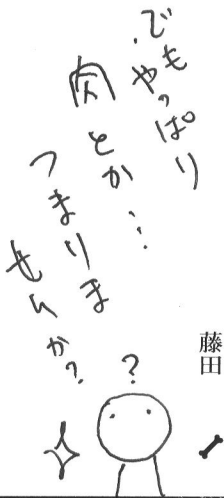 でも
やっぱり
肉とか…
つまりま
せんか?
?
藤田